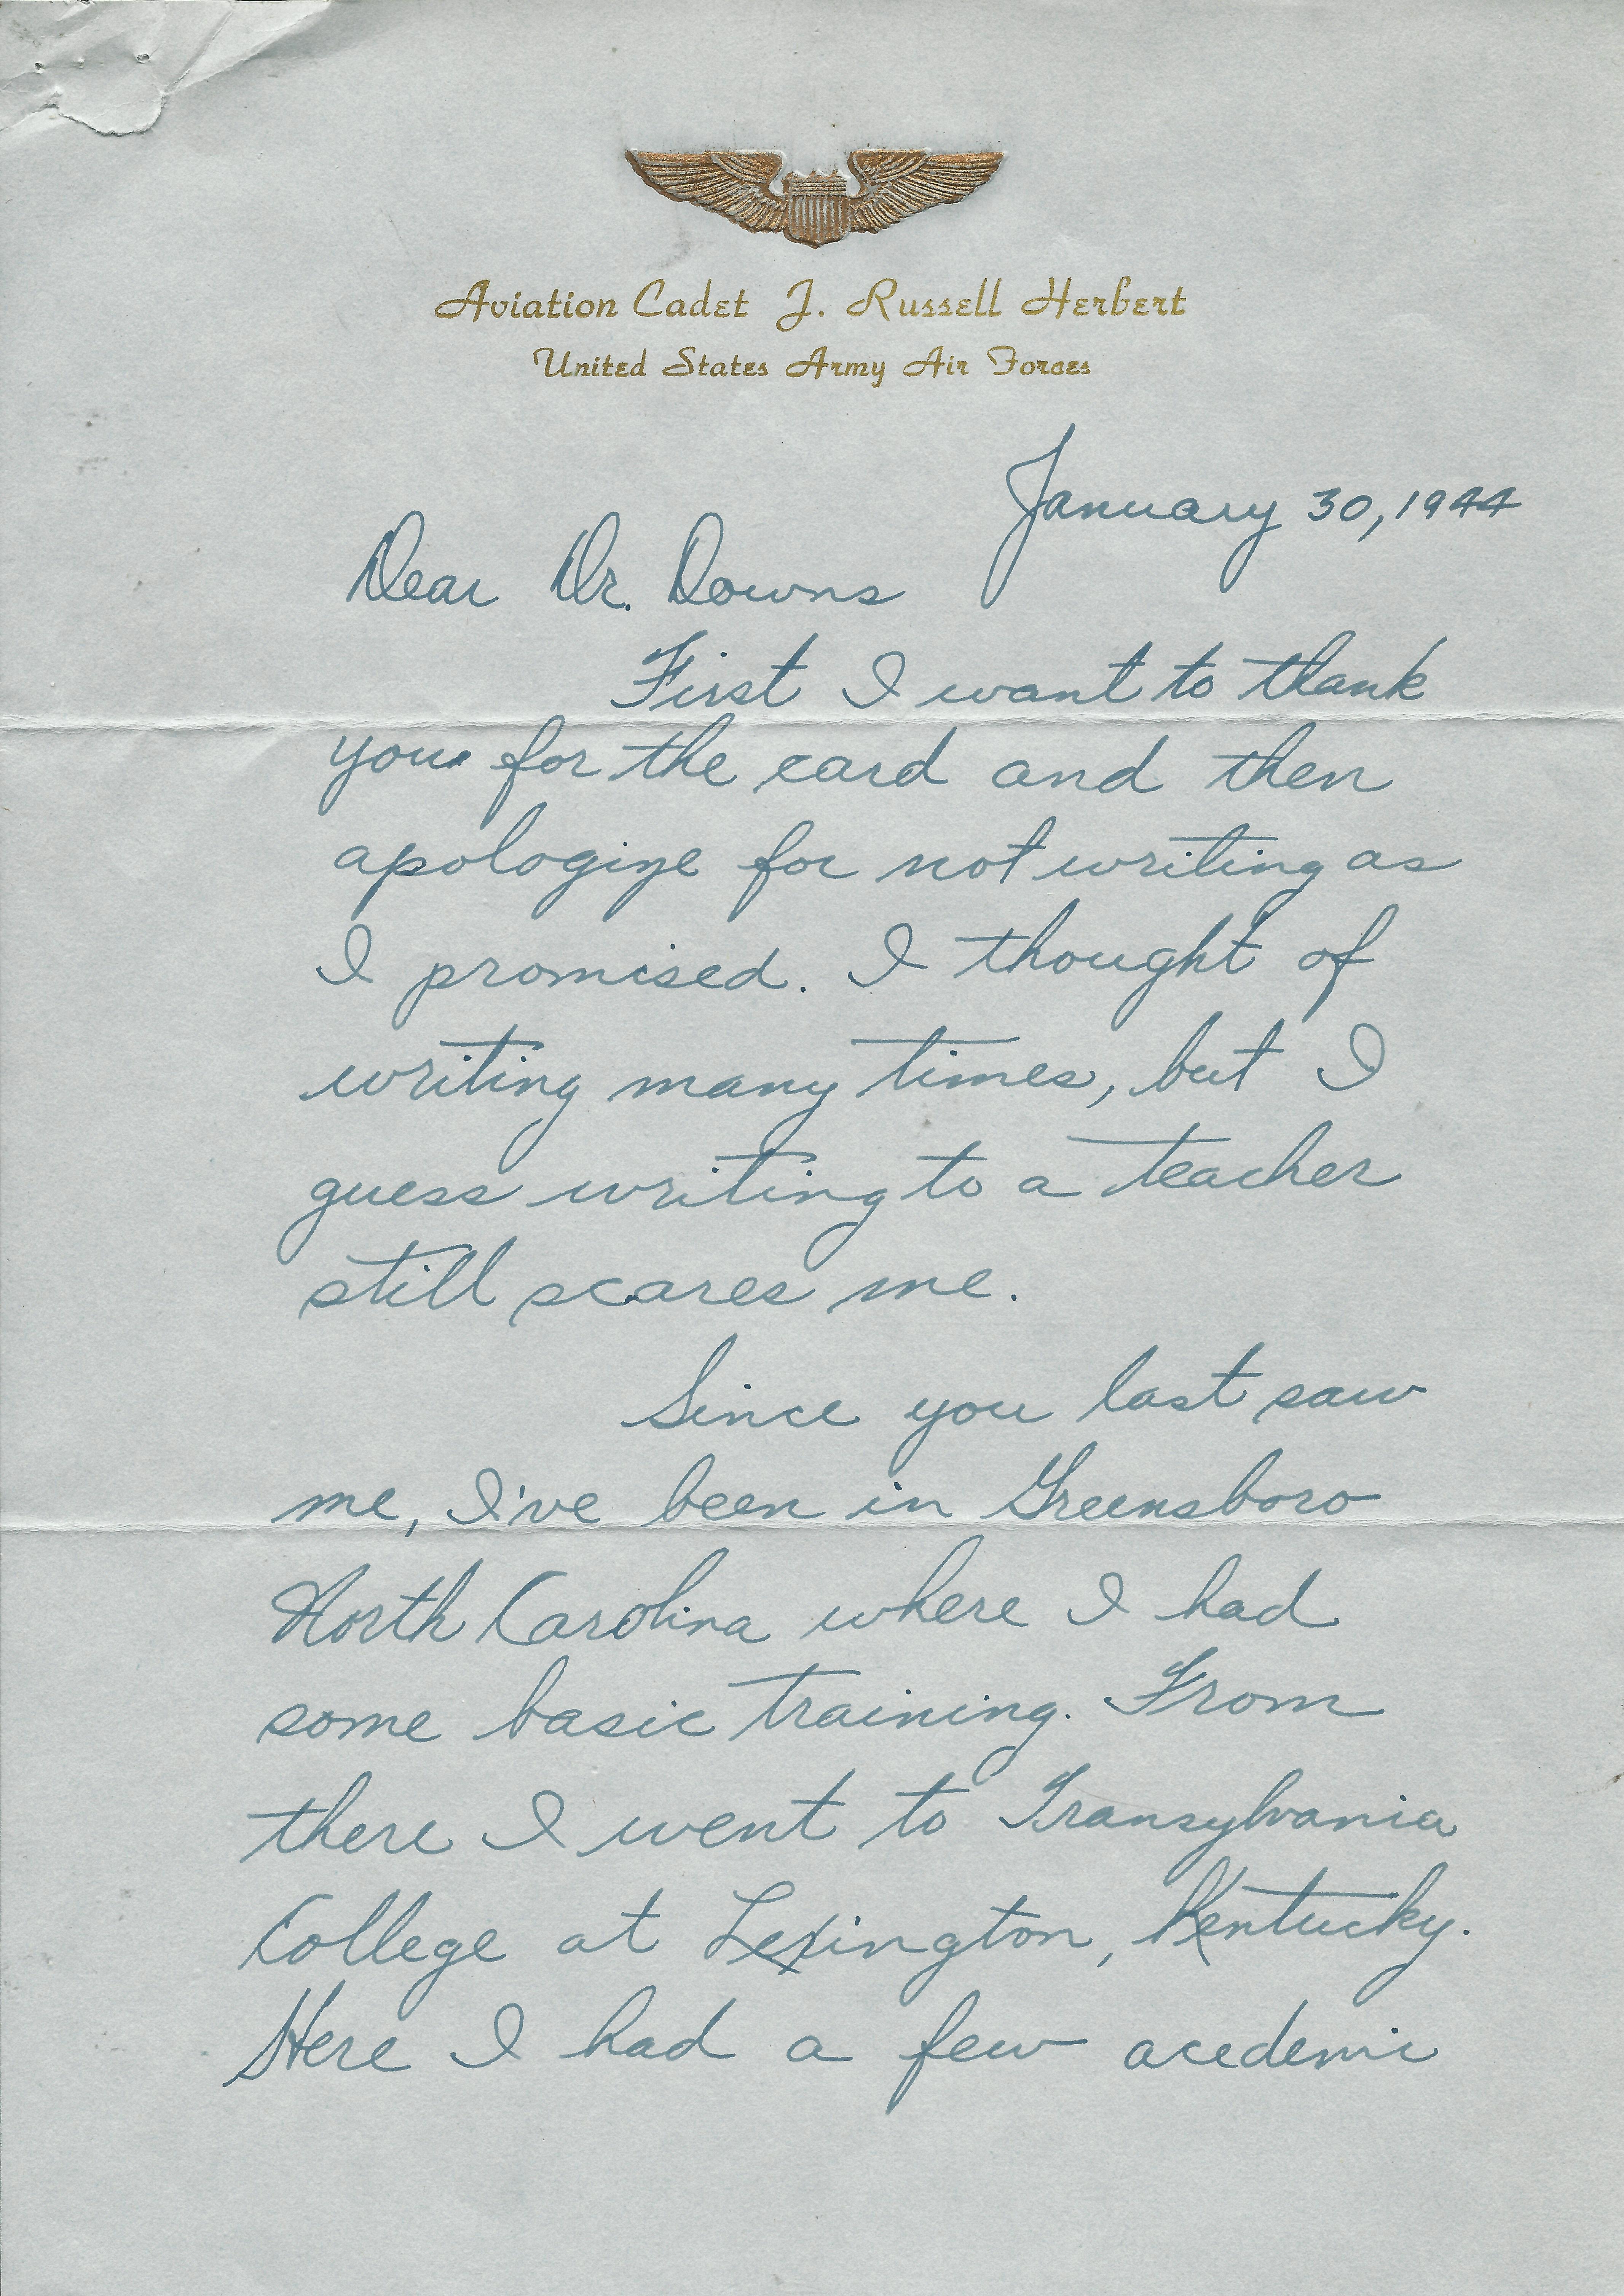 Aviation Cadet J. Russell Herbert
United States Army Air Forces
January 30, 1944
Dear Dr. Downs
First I want to thank
you for the card and then
apologize for not writing as
I promised. I thought of
writing many times, but I
guess writing to a teacher
still scares me.
Since you last saw
me, I've been in Greensboro
North Carolina where I had
some basic training. From
there I went to Transylvania
College at Lexington, Kentucky.
Here I had a few acedemic